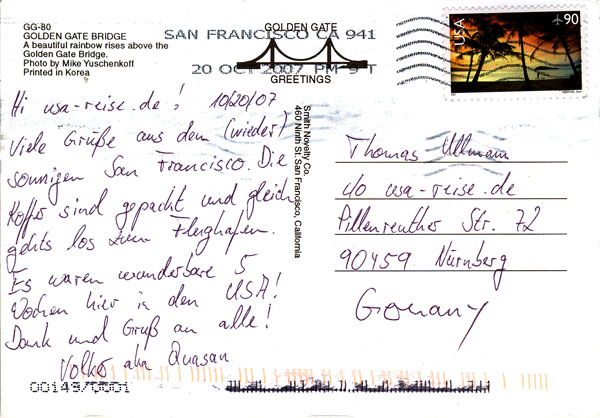 GG-80
GOLDEN GATE BRIDGE
A beautiful rainbow rises above the
Golden Gate Bridge.
Photo by Mike Yuschenkoff
Printed in Korea
GOLDEN GATE
GREETINGS
SAN FRANCISCO CA 941
20 OCT 2007 PM 9 T
USA
90
Hi usa-reise.de! 10/20/07
Viele Grüße aus dem (wieder)
sonnigen San Francisco. Die
Koffer sind gepackt und gleich
gehts los zum Flughafen.
Es waren wunderbare 5
Wochen hier in den USA!
Dank und Gruß an alle!
Volker aka Quasan
Smith Novelty Co.
460 Ninth St., San Francisco, California
Thomas Ullmann
c/o usa-reise.de
Pillenreuther Str. 72
90459 Nürnberg
Germany
00149/0001